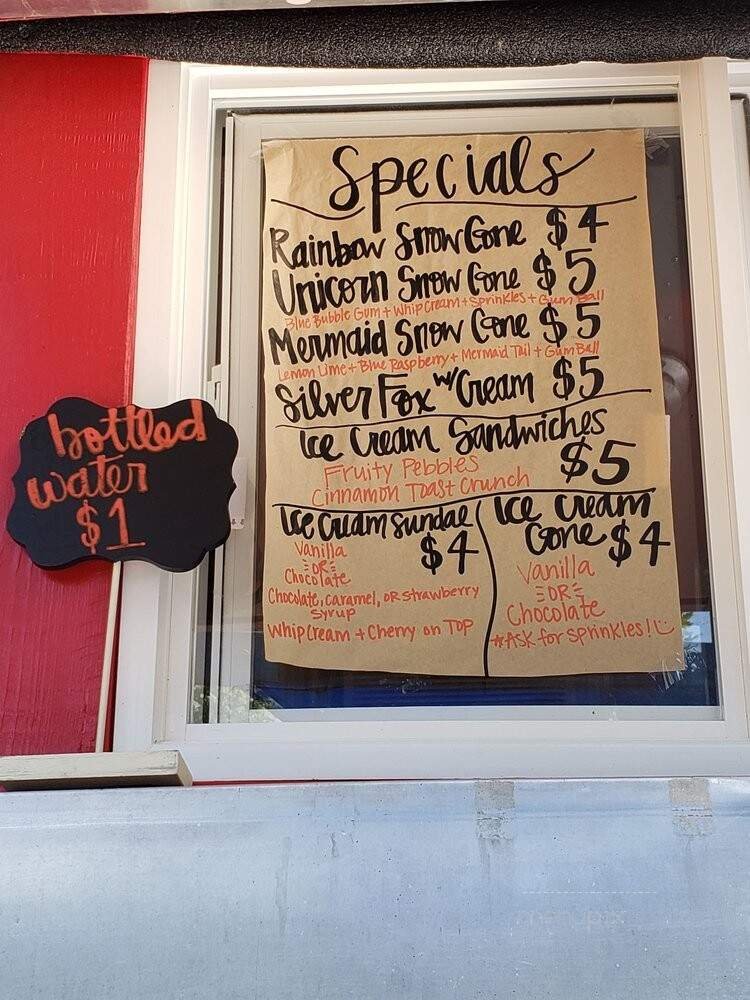 Specials
Rainbow Snow Cone $4
Unicorn Snow Cone $5
Blue Bubble Gum + Whip Cream + Sprinkles + Gum Ball
Mermaid Snow Cone $5
Lemon Lime + Blue Raspberry + Mermaid Tail + Gum Ball
Silver Fox w/ Cream $5
Ice Cream Sandwiches
Fruity Pebbles
Cinnamon Toast Crunch
$5
Ice Cream Sundae
$4
Vanilla
OR
Chocolate
Chocolate, Caramel, OR Strawberry
Syrup
Whip Cream + Cherry on Top
Ice Cream
Cone $4
Vanilla
OR
Chocolate
*Ask for sprinkles!
bottled
water
$1